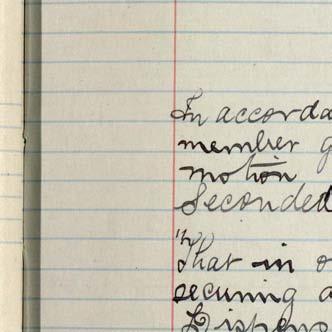 In accorda
member g
motion
Seconded
"That in o
securing a